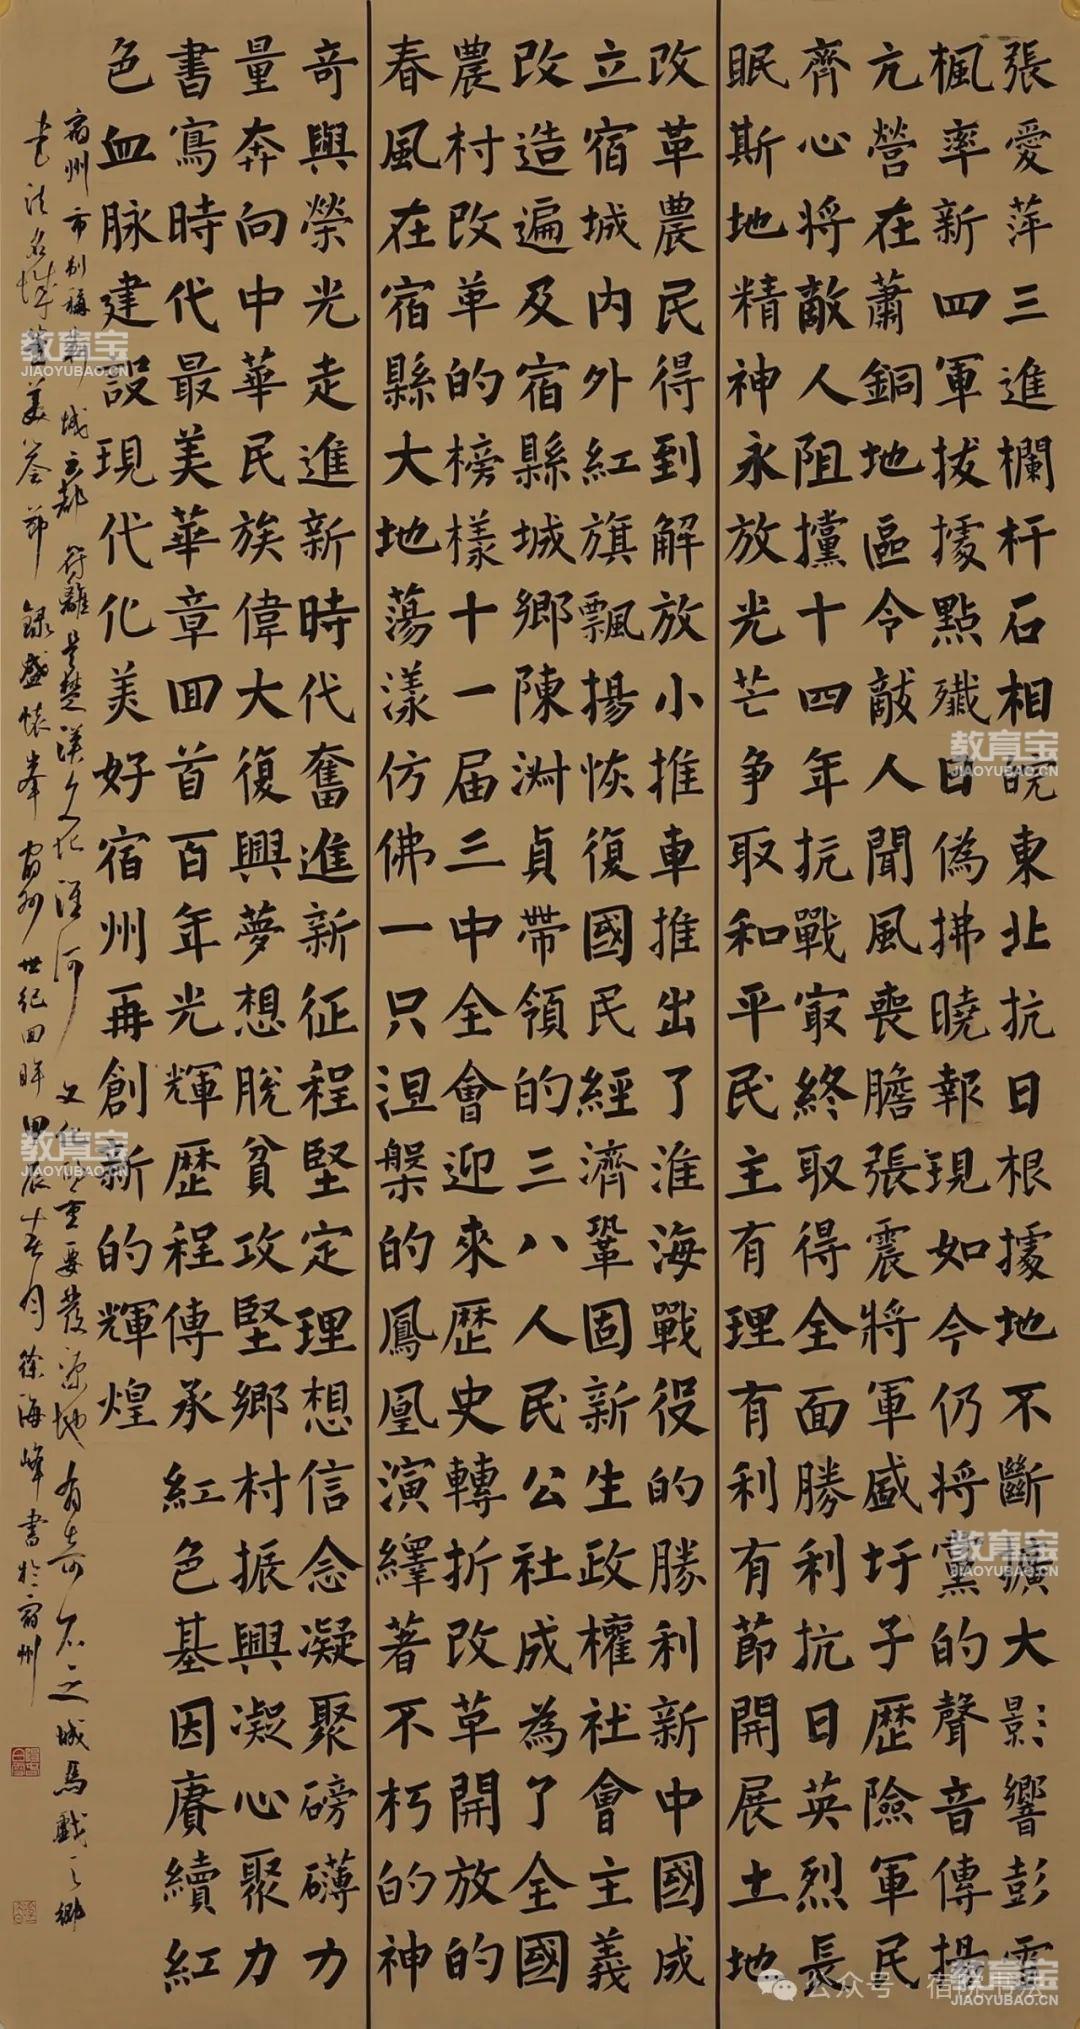 張愛萍三進欄杆石相皖東北抗日根據地不斷擴大影響彭雪
楓率新四軍拔據點殲日偽拂曉報現如今仍將黨的聲音傳揚
亢營在蕭銅地區令敵人聞風喪膽張震將軍盛圩子歷險軍民
齊心將敵人阻攩十四年抗戰最終取得全面勝利抗日英烈長
眠斯地精神永放光芒爭取和平民主有理有利有節開展土地
改革農民得到解放小推車推出了淮海戰役的勝利新中國成
立宿城內外紅旗飄揚恢復國民經濟鞏固新生政權社會主義
改造遍及宿縣城鄉陳淑貞帶領的三八人民公社成為了全國
農村改革的榜樣十一届三中全會迎來歷史轉折改革開放的
春風在宿縣大地蕩漾仿佛一只涅槃的鳳凰演繹著不朽的神
奇與榮光走進新時代奮進新征程堅定理想信念凝聚磅礴力
量奔向中華民族偉大復興夢想脫貧攻堅鄉村振興凝心聚力
書寫時代最美華章回首百年光輝歷程傳承紅色基因賡續紅
色血脉建設現代化美好宿州再創新的輝煌
宿州市別稱蘄城古都符離是楚漢文化淮河文化的重要發源地有奇石之城馬戲之鄉
書法名城等美譽節錄盛懷峯宿州世紀回眸甲辰春月徐海峰書於宿州
教育宝
JIAOYUBAO.CN
教育宝
JIAOYUBAO.CN
教育宝
JIAOYUBAO.CN
教育宝
JIAOYUBAO.CN
教育宝
JIAOYUBAO.CN
公众号